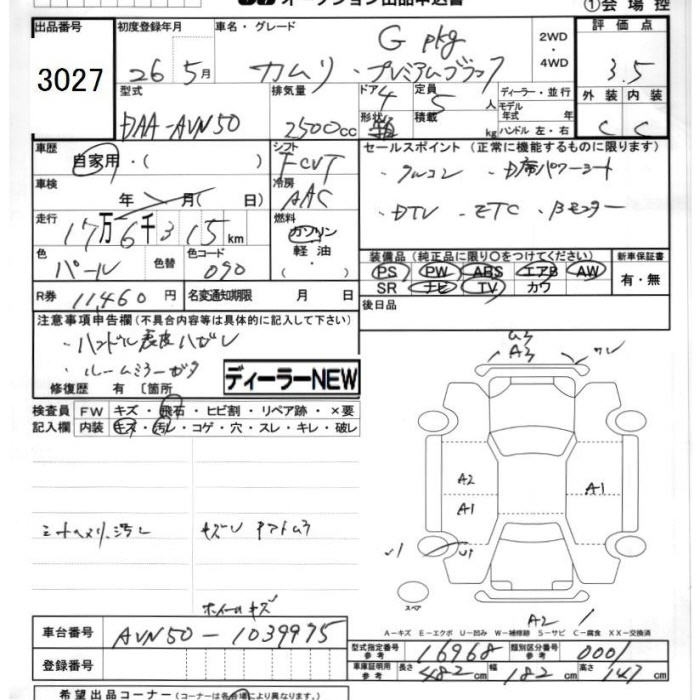 オークション出品申込書
①会場控
出品番号
3027
初度登録年月
26 5月
車名・グレード
G pkg
カムリ・プレミアムブラック
2WD・4WD
評価点
3.5
外装 内装
C C
型式
DAA-AVN50
排気量
2500cc
ドア
4
形状
箱
定員
5人
積載
kg
ディーラー・並行
モデル年式 年
ハンドル 左・右
車歴
自家用・( )
シフト
FCVT
車検
年 月( 日)
冷房
AAC
走行
17万6千315km
燃料
ガソリン
軽油
・( )
色
パール
色替
色コード
090
R券
11,460円
名変通知期限 月 日
セールスポイント(正常に機能するものに限ります)
・クルコン ・D席パワーシート
・DTV ・ETC ・Bモニター
装備品(純正品に限り○をつけてください)
PS PW ABS エアB AW
SR ナビ TV カワ
新車保証書
有・無
後日品
注意事項申告欄(不具合内容等は具体的に記入して下さい)
・ハンドル表皮ハガレ
・ルームミラーガタ
修復歴 有 〔箇所
ディーラーNEW
検査員記入欄
FW キズ・飛石・ヒビ割・リペア跡・×要
内装 キズ・汚レ・コゲ・穴・スレ・キレ・破レ
A3
ワレ
A2
A1
A1
U1
スペア
A2
ホイールキズ
A-キズ E-エクボ U-凹み W-補修跡 S-サビ C-腐食 XX-交換済
車台番号
AVN50-1039975
登録番号
型式指定番号 参考
16968
類別区分番号 参考
0001
車庫証明用 参考
長さ
482cm
幅
182cm
高さ
147cm
希望出品コーナー(コーナーは各会場により異なります。)